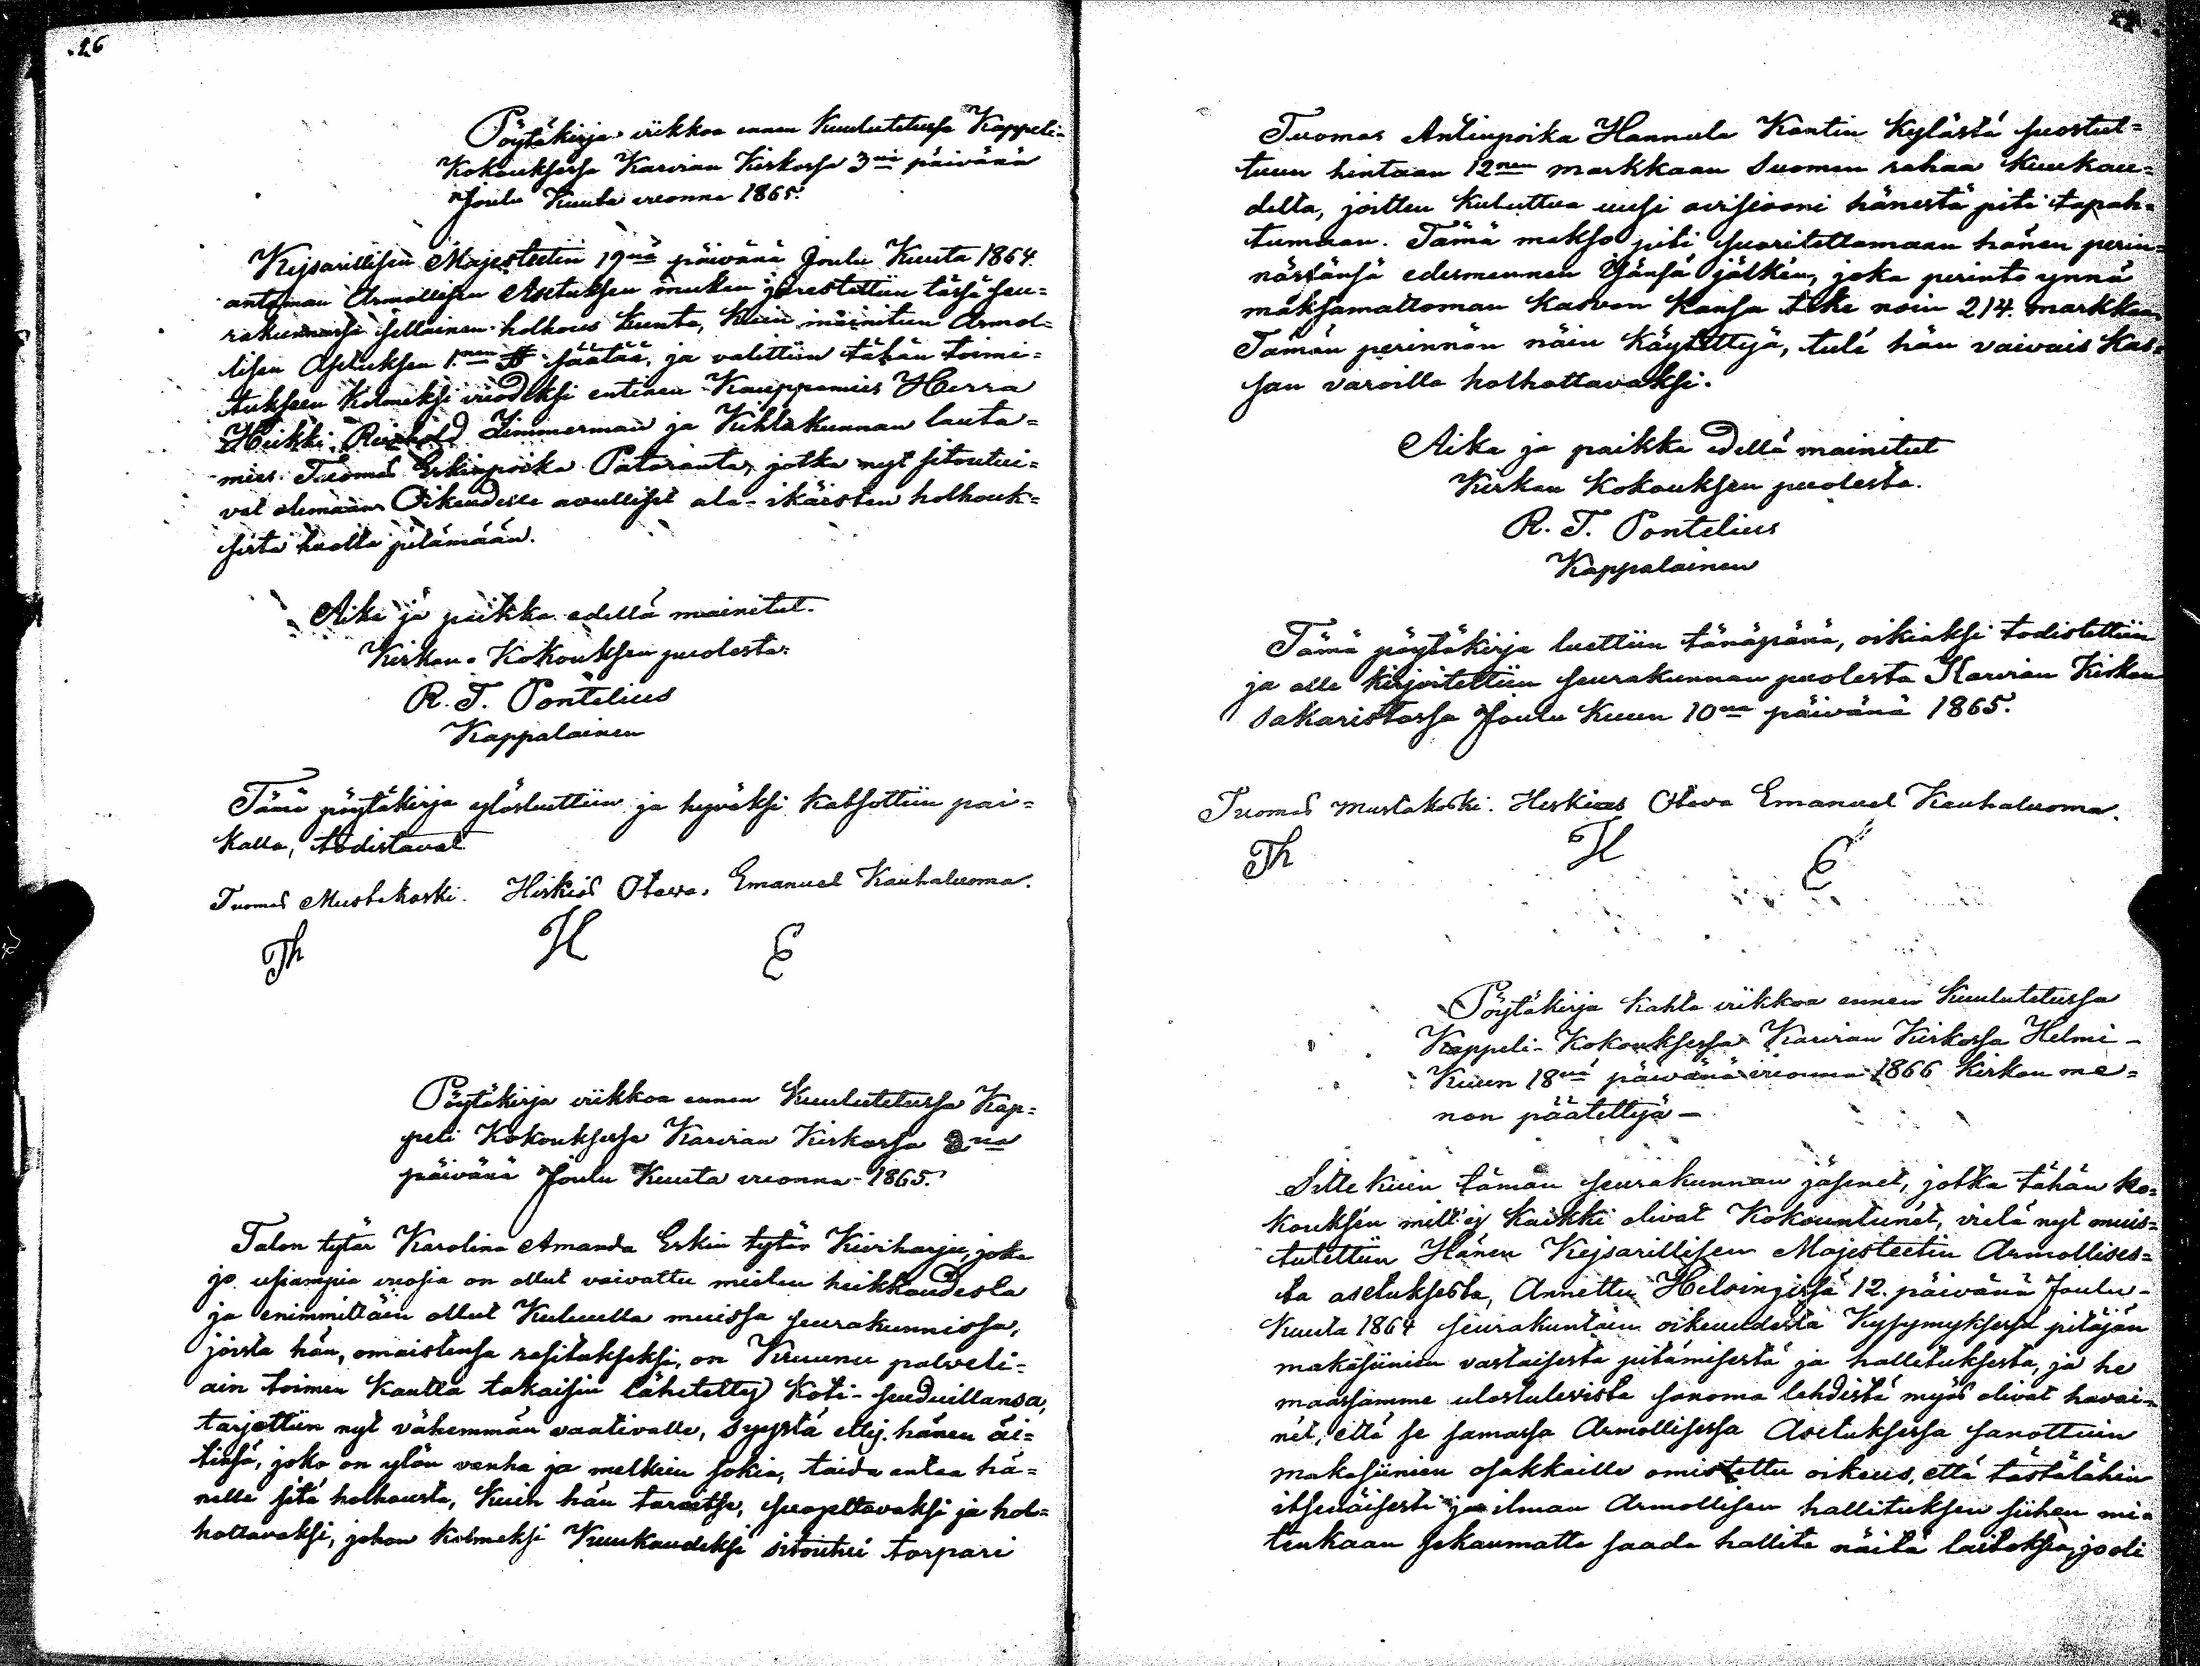 26
Pöytäkirja viikkoa ennen Kuulutetussa Kappeli-
Kokouksessa Karvian Kirkossa 3na päivänä
Joulu Kuuta vuonna 1865.
Kejsarillisen Majesteetin 19nä päivänä Joulu Kuuta 1864
antaman Armollisen Asetuksen mukan järestettiin tässä seu=
rakunnassa sellainen holhous kunta, kuin mainitun Armol=
lisen Asetuksen 1.nen § säätää, ja valittiin tähän toimi=
tukseen Kolmeksi vuodeksi entinen Kauppamies Herra
Heikki Reinhold Zimmerman ja Kihlakunnan lauta=
mies Tuomas Erkinpoika Pataranta, jotka nyt sitoutui=
vat olemaan Oikeudelle avulliset ala-ikäisten holhouk=
sista huolta pitämään.
Aika ja paikka edellä mainitut.
Kirkon-Kokouksen puolesta:
R. T. Pontelius
Kappalainen
Tämä pöytäkirja ylösluettiin ja hyväksi katsottiin pai=
kalla, todistavat
Tuomas Mustakoski. Hiskias Otava. Emanuel Kauhaluoma.
Th H E
Pöytäkirja viikkoa ennen Kuulutetussa Kap=
peli Kokouksessa Karvian Kirkossa 3na
päivänä Joulu Kuuta vuonna 1865.
Talon tytär Karolina Amanda Erkin tytär Kiviharju, joka
jo usiampia vuosia on ollut vaivattu mielen heikkoudesta
ja enimmittäin ollut Kuluulla muissa seurakunnissa,
joista hän, omaistensa rasitukseksi, on Kruunu palveli=
ain toimen kautta takaisin lähetetty Koti-seuduillansa,
tarjottiin nyt vähemmän vaativalle, syystä ettej hänen äi=
tinsä, joko on ylön vanha ja melkein sokia, taida antaa hä=
nelle sitä holhousta, kuin hän tarvitse, ruopttavaksi ja hol=
hottavaksi, johon Kolmeksi Kuukaudeksi sitoutui torpari
Tuomas Antinpoika Hannula Kantin Kylästä suostut=
tuun hintaan 12nen markkaan Suomen rahaa Kuukau=
delta, joitten kuluttua uusi avisiooni hänestä piti tapah=
tumaan. Tämä makso piti suoritettamaan hänen perin=
nöstänsä edesmennen Isänsä jälkén, joka perinto ynnä
maksamattoman kasvon kansa teke noin 214. markkaa
Tämän perinnön näin käytettyä, tulé hän vaivais kas=
san varoilla holhottavaksi.
Aika ja paikka edellä mainitut
Kirkon Kokouksen puolesta.
R. T. Pontelius
Kappalainen
Tämä pöytäkirja luettiin tänäpänä, oikiaksi todistettiin
ja alle kirjoitettiin seurakunnan puolesta Karvian Kirkon
Sakaristossa Joulu Kuun 10nä päivänä 1865.
Tuomas Mustakoski. Heskias Otava Emanuel Kauhaluoma.
Th H E
Pöytäkirja Kahta viikkoa ennen Kuulutetussa
Kappeli-Kokouksessa Karvian Kirkossa Helmi-
Kuun 18nä päivänä vuonna 1866 Kirkon me=
non päätettyä -
Sitte kuin tämän seurakunnan jäsenet, jotka tähän ko=
kouksén milt'ej kaikki olivat Kokountunét, vielä nyt muis=
tutettiin Hänen Kejsarillisen Majesteetin Armollises=
ta asetuksesta, Annettu Helsingissä 12. päivänä Joulu-
Kuuta 1864 seurakuntain oikeudesta Kysymyksessä pitäjän
makasiinien vastaisesta pitämisestä ja hallituksesta, ja he
maassamme ulostulevista sanoma lehdistä myös olivat havai=
nét, että se samassa Armollisessa Asetuksessa sanottuin
makasiinien osakkaille omistettu oikeus, että tästälähin
itsenäisesti ja ilman Armollisen hallituksen siihen mi=
tenkaan sekaumatta saada hallita näitä laitoksia, jo oli